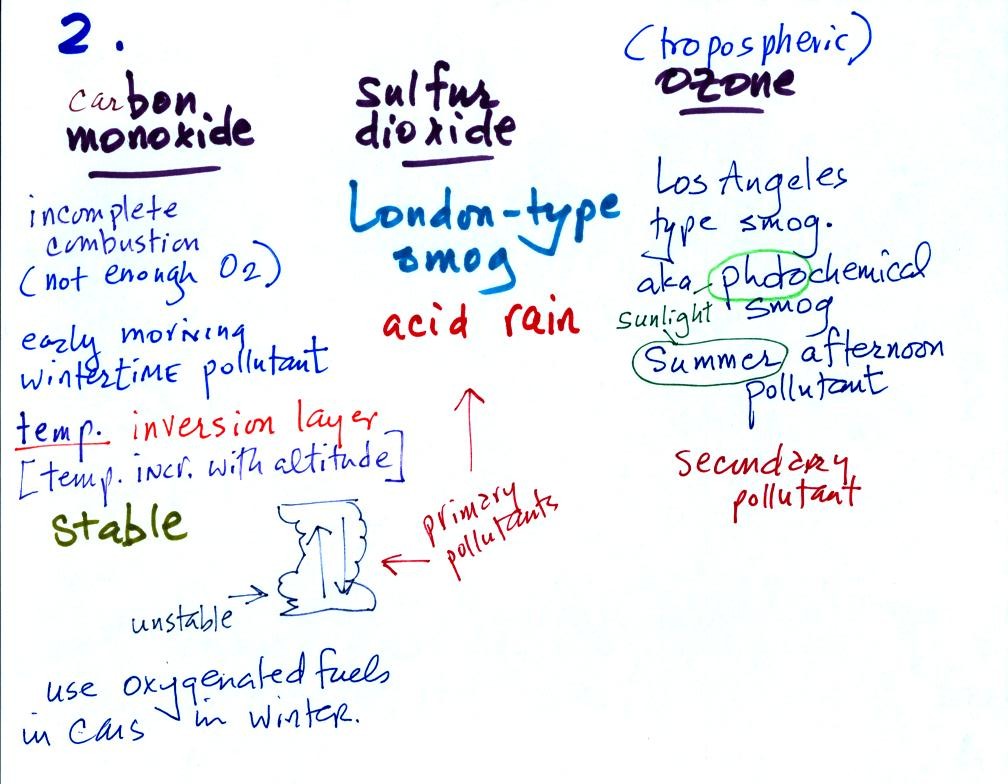 2.
carbon
monoxide
incomplete
combustion
(not enough O2)
early morining
wintertime pollutant
temp. inversion layer
[temp. incr. with altitude]
stable
unstable
use oxygenated fuels
in cars in winter.
sulfur
dioxide
London-type
smog
acid rain
primary
pollutants
(tropospheric)
ozone
Los Angeles
type smog.
aka photochemical
smog
sunlight
Summer afternoon
pollutant
secondary
pollutant